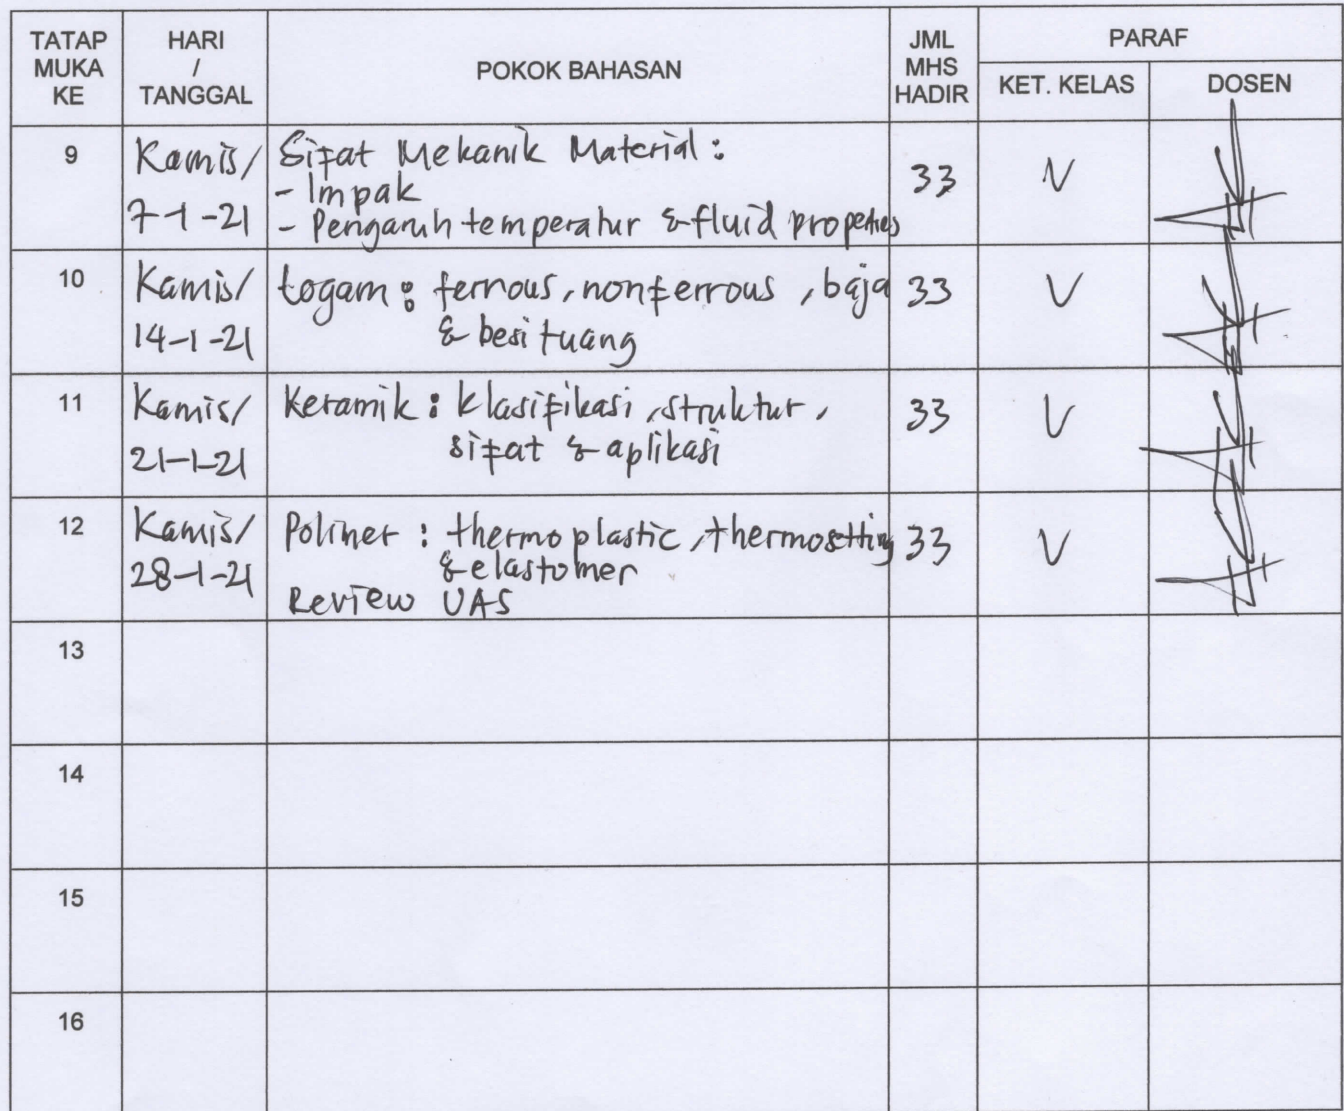 TATAP MUKA KE
HARI / TANGGAL
POKOK BAHASAN
JML MHS HADIR
PARAF
KET. KELAS
DOSEN
9
Kamis/
7-1-21
Sifat Mekanik Material :
- Impak
- Pengaruh temperatur & fluid properties
33
V
10
Kamis/
14-1-21
Logam : ferrous, nonferrous, baja
& besi tuang
33
V
11
Kamis/
21-1-21
Keramik : klasifikasi, struktur,
sifat & aplikasi
33
V
12
Kamis/
28-1-21
Polimer : thermoplastic, thermosetting
& elastomer
Review UAS
33
V
13
14
15
16